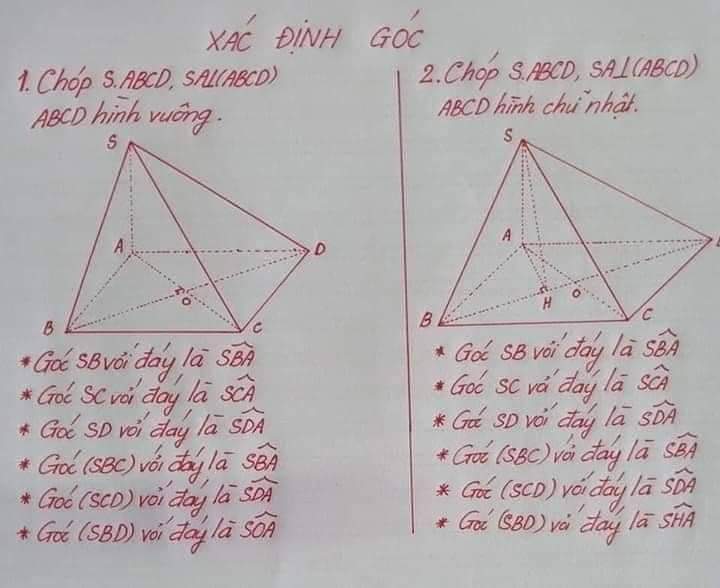 XÁC ĐỊNH GÓC
1. Chóp S.ABCD, SA⊥(ABCD)
ABCD hình vuông.
S
A
D
O
B
C
* Góc SB với đáy là SBA
* Góc SC với đáy là SCA
* Góc SD với đáy là SDA
* Góc (SBC) với đáy là SBA
* Góc (SCD) với đáy là SDA
* Góc (SBD) với đáy là SOA
2. Chóp S.ABCD, SA⊥(ABCD)
ABCD hình chữ nhật.
S
A
H
O
B
C
* Góc SB với đáy là SBA
* Góc SC với đáy là SCA
* Góc SD với đáy là SDA
* Góc (SBC) với đáy là SBA
* Góc (SCD) với đáy là SDA
* Góc (SBD) với đáy là SHA